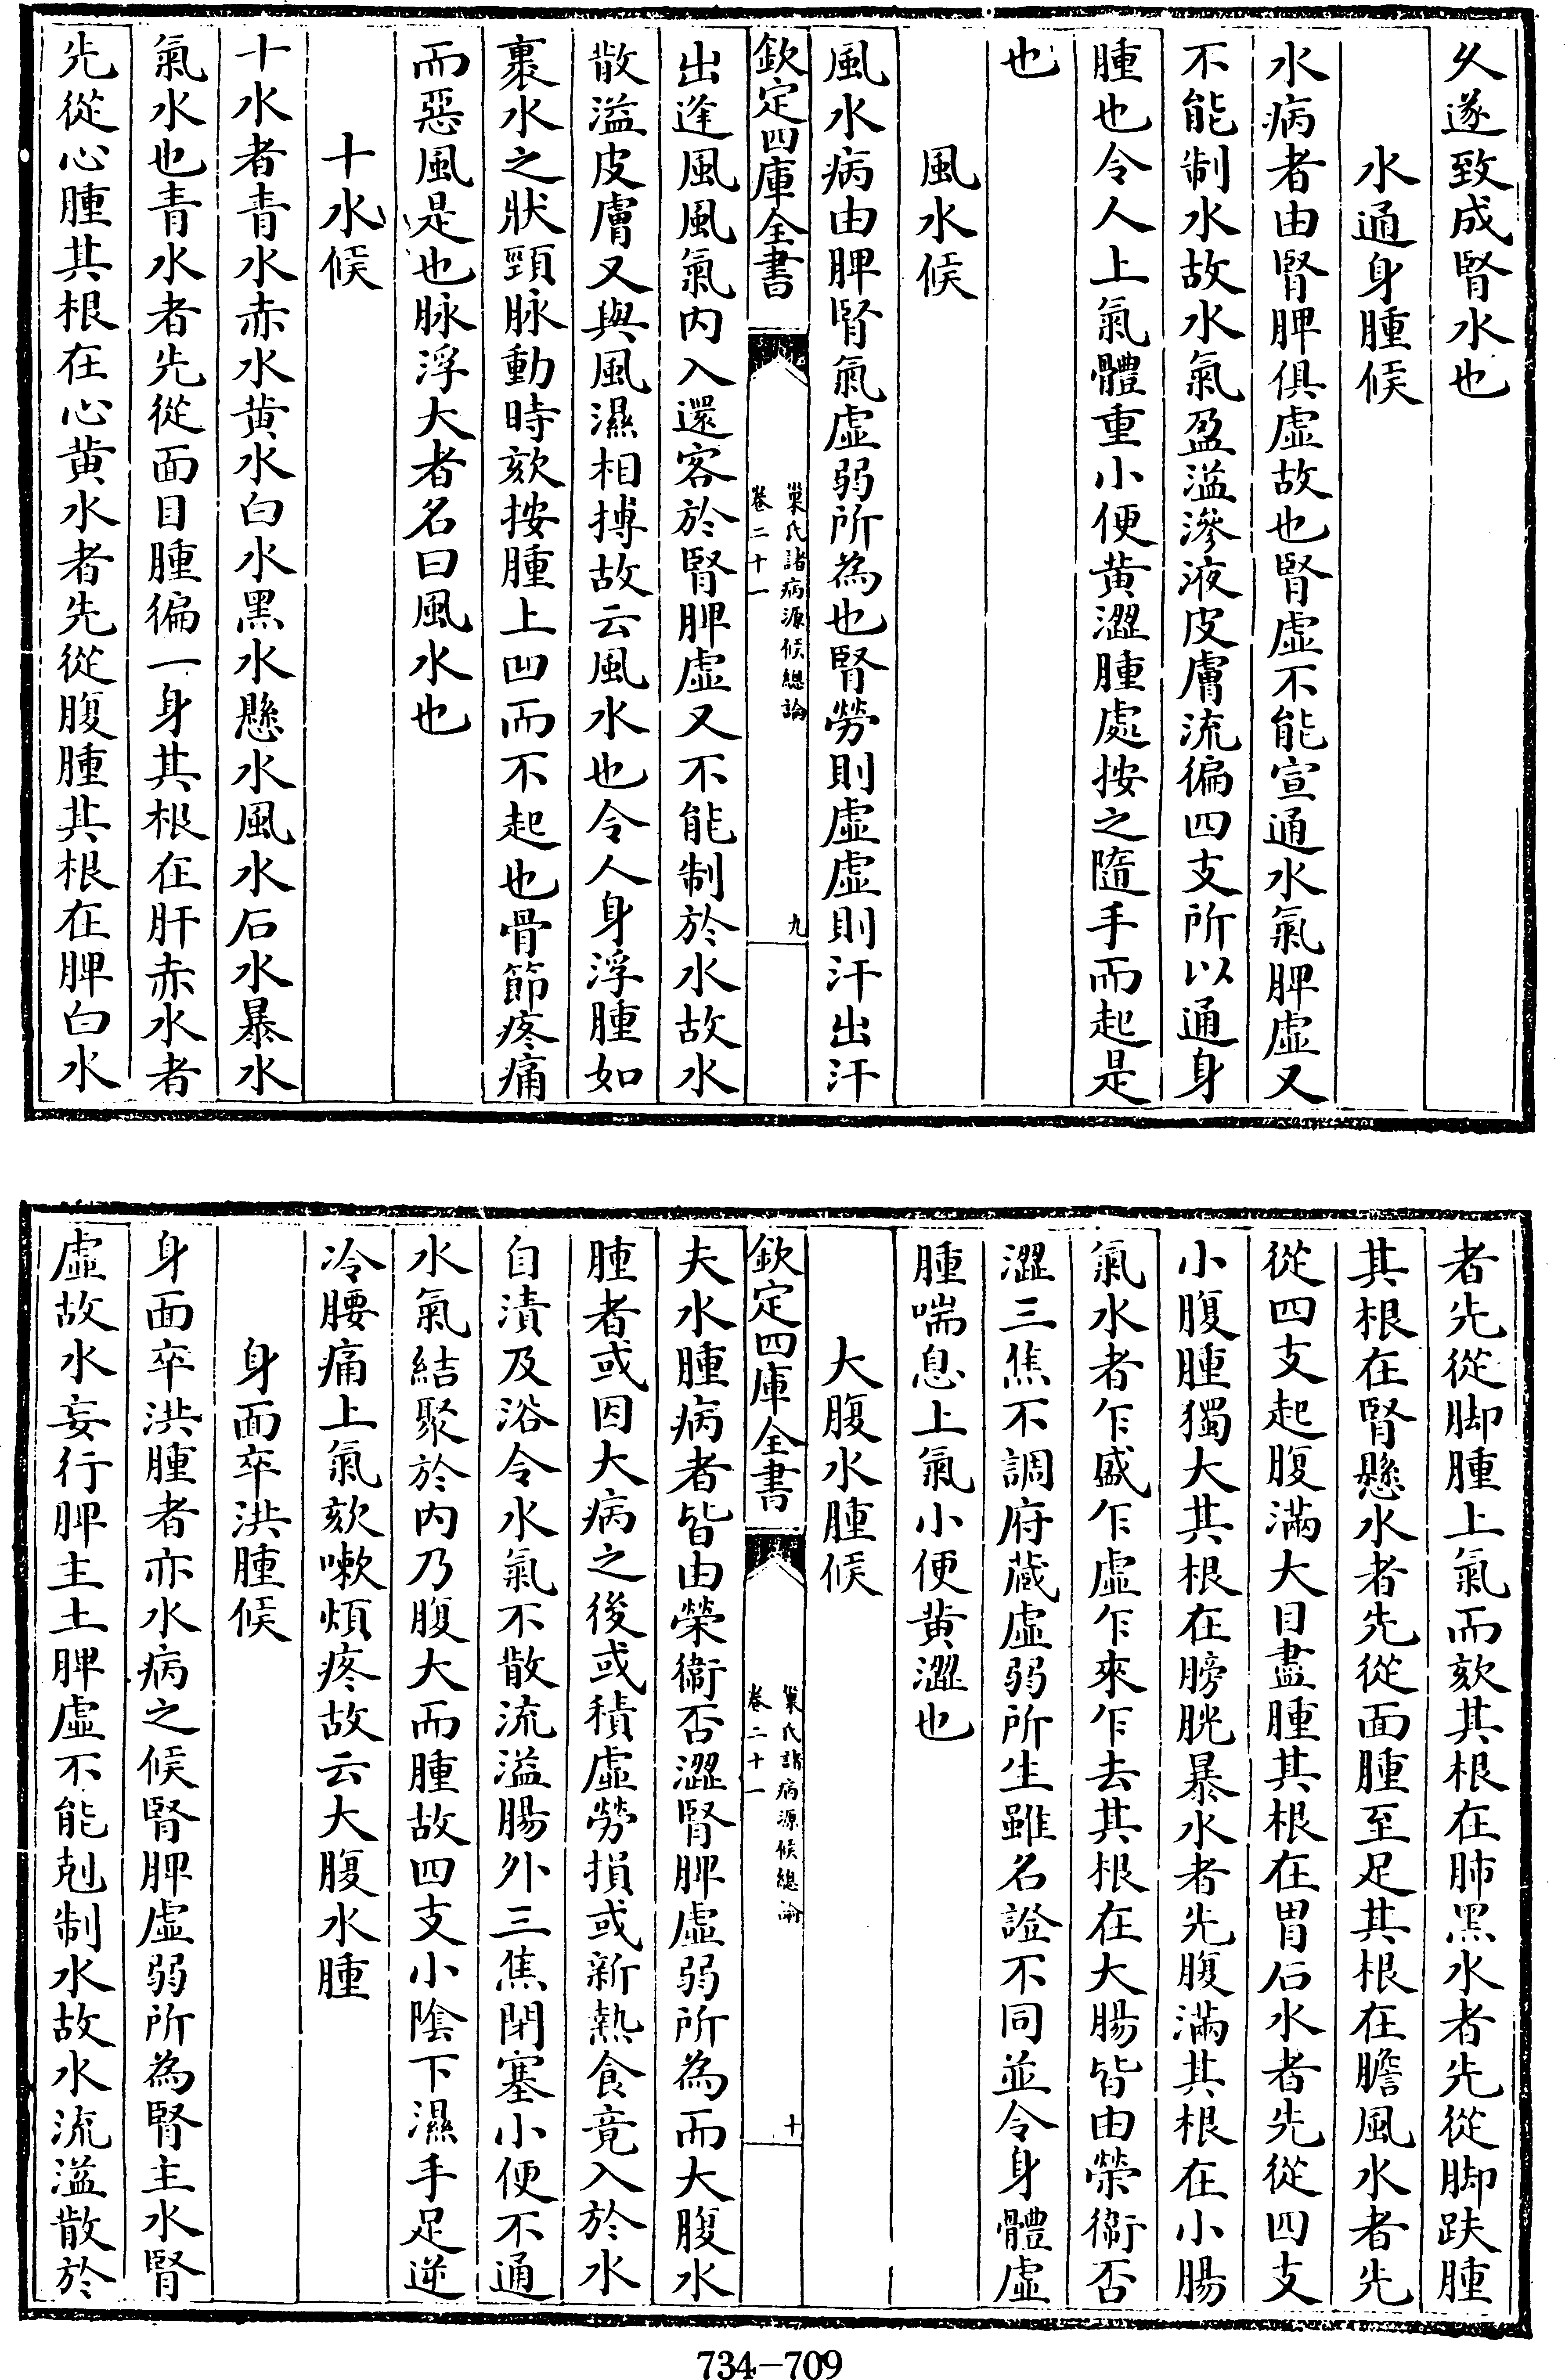 久遂致成腎水也
水通身腫候
水病者由腎脾俱虛故也腎虛不能宣通水氣脾虛又
不能制水故水氣盈溢滲液皮膚流徧四支所以通身
腫也令人上氣體重小便黃澀腫處按之隨手而起是
也
風水候
風水病由脾腎氣虛弱所為也腎勞則虛虛則汗出汗
欽定四庫全書
巢氏諸病源候總論
卷二十一
九
出逢風風氣内入還客於腎脾虛又不能制於水故水
散溢皮膚又與風濕相搏故云風水也令人身浮腫如
裹水之狀頸脉動時欬按腫上凹而不起也骨節疼痛
而惡風是也脉浮大者名曰風水也
十水候
十水者青水赤水黃水白水黑水懸水風水石水暴水
氣水也青水者先從面目腫徧一身其根在肝赤水者
先從心腫其根在心黃水者先從腹腫其根在脾白水
者先從脚腫上氣而欬其根在肺黑水者先從脚趺腫
其根在腎懸水者先從面腫至足其根在膽風水者先
從四支起腹滿大目盡腫其根在胃石水者先從四支
小腹腫獨大其根在膀胱暴水者先腹滿其根在小腸
氣水者乍盛乍虛乍來乍去其根在大腸皆由榮衞否
澀三焦不調府藏虛弱所生雖名證不同並令身體虛
腫喘息上氣小便黃澀也
大腹水腫候
欽定四庫全書
巢氏諸病源候總論
卷二十一
十
夫水腫病者皆由榮衞否澀腎脾虛弱所為而大腹水
腫者或因大病之後或積虛勞損或新熱食竟入於水
自漬及浴令水氣不散流溢腸外三焦閉塞小便不通
水氣結聚於内乃腹大而腫故四支小陰下濕手足逆
冷腰痛上氣欬嗽煩疼故云大腹水腫
身面卒洪腫候
身面卒洪腫者亦水病之候腎脾虛弱所為腎主水腎
虛故水妄行脾主土脾虛不能剋制水故水流溢散於
734-709